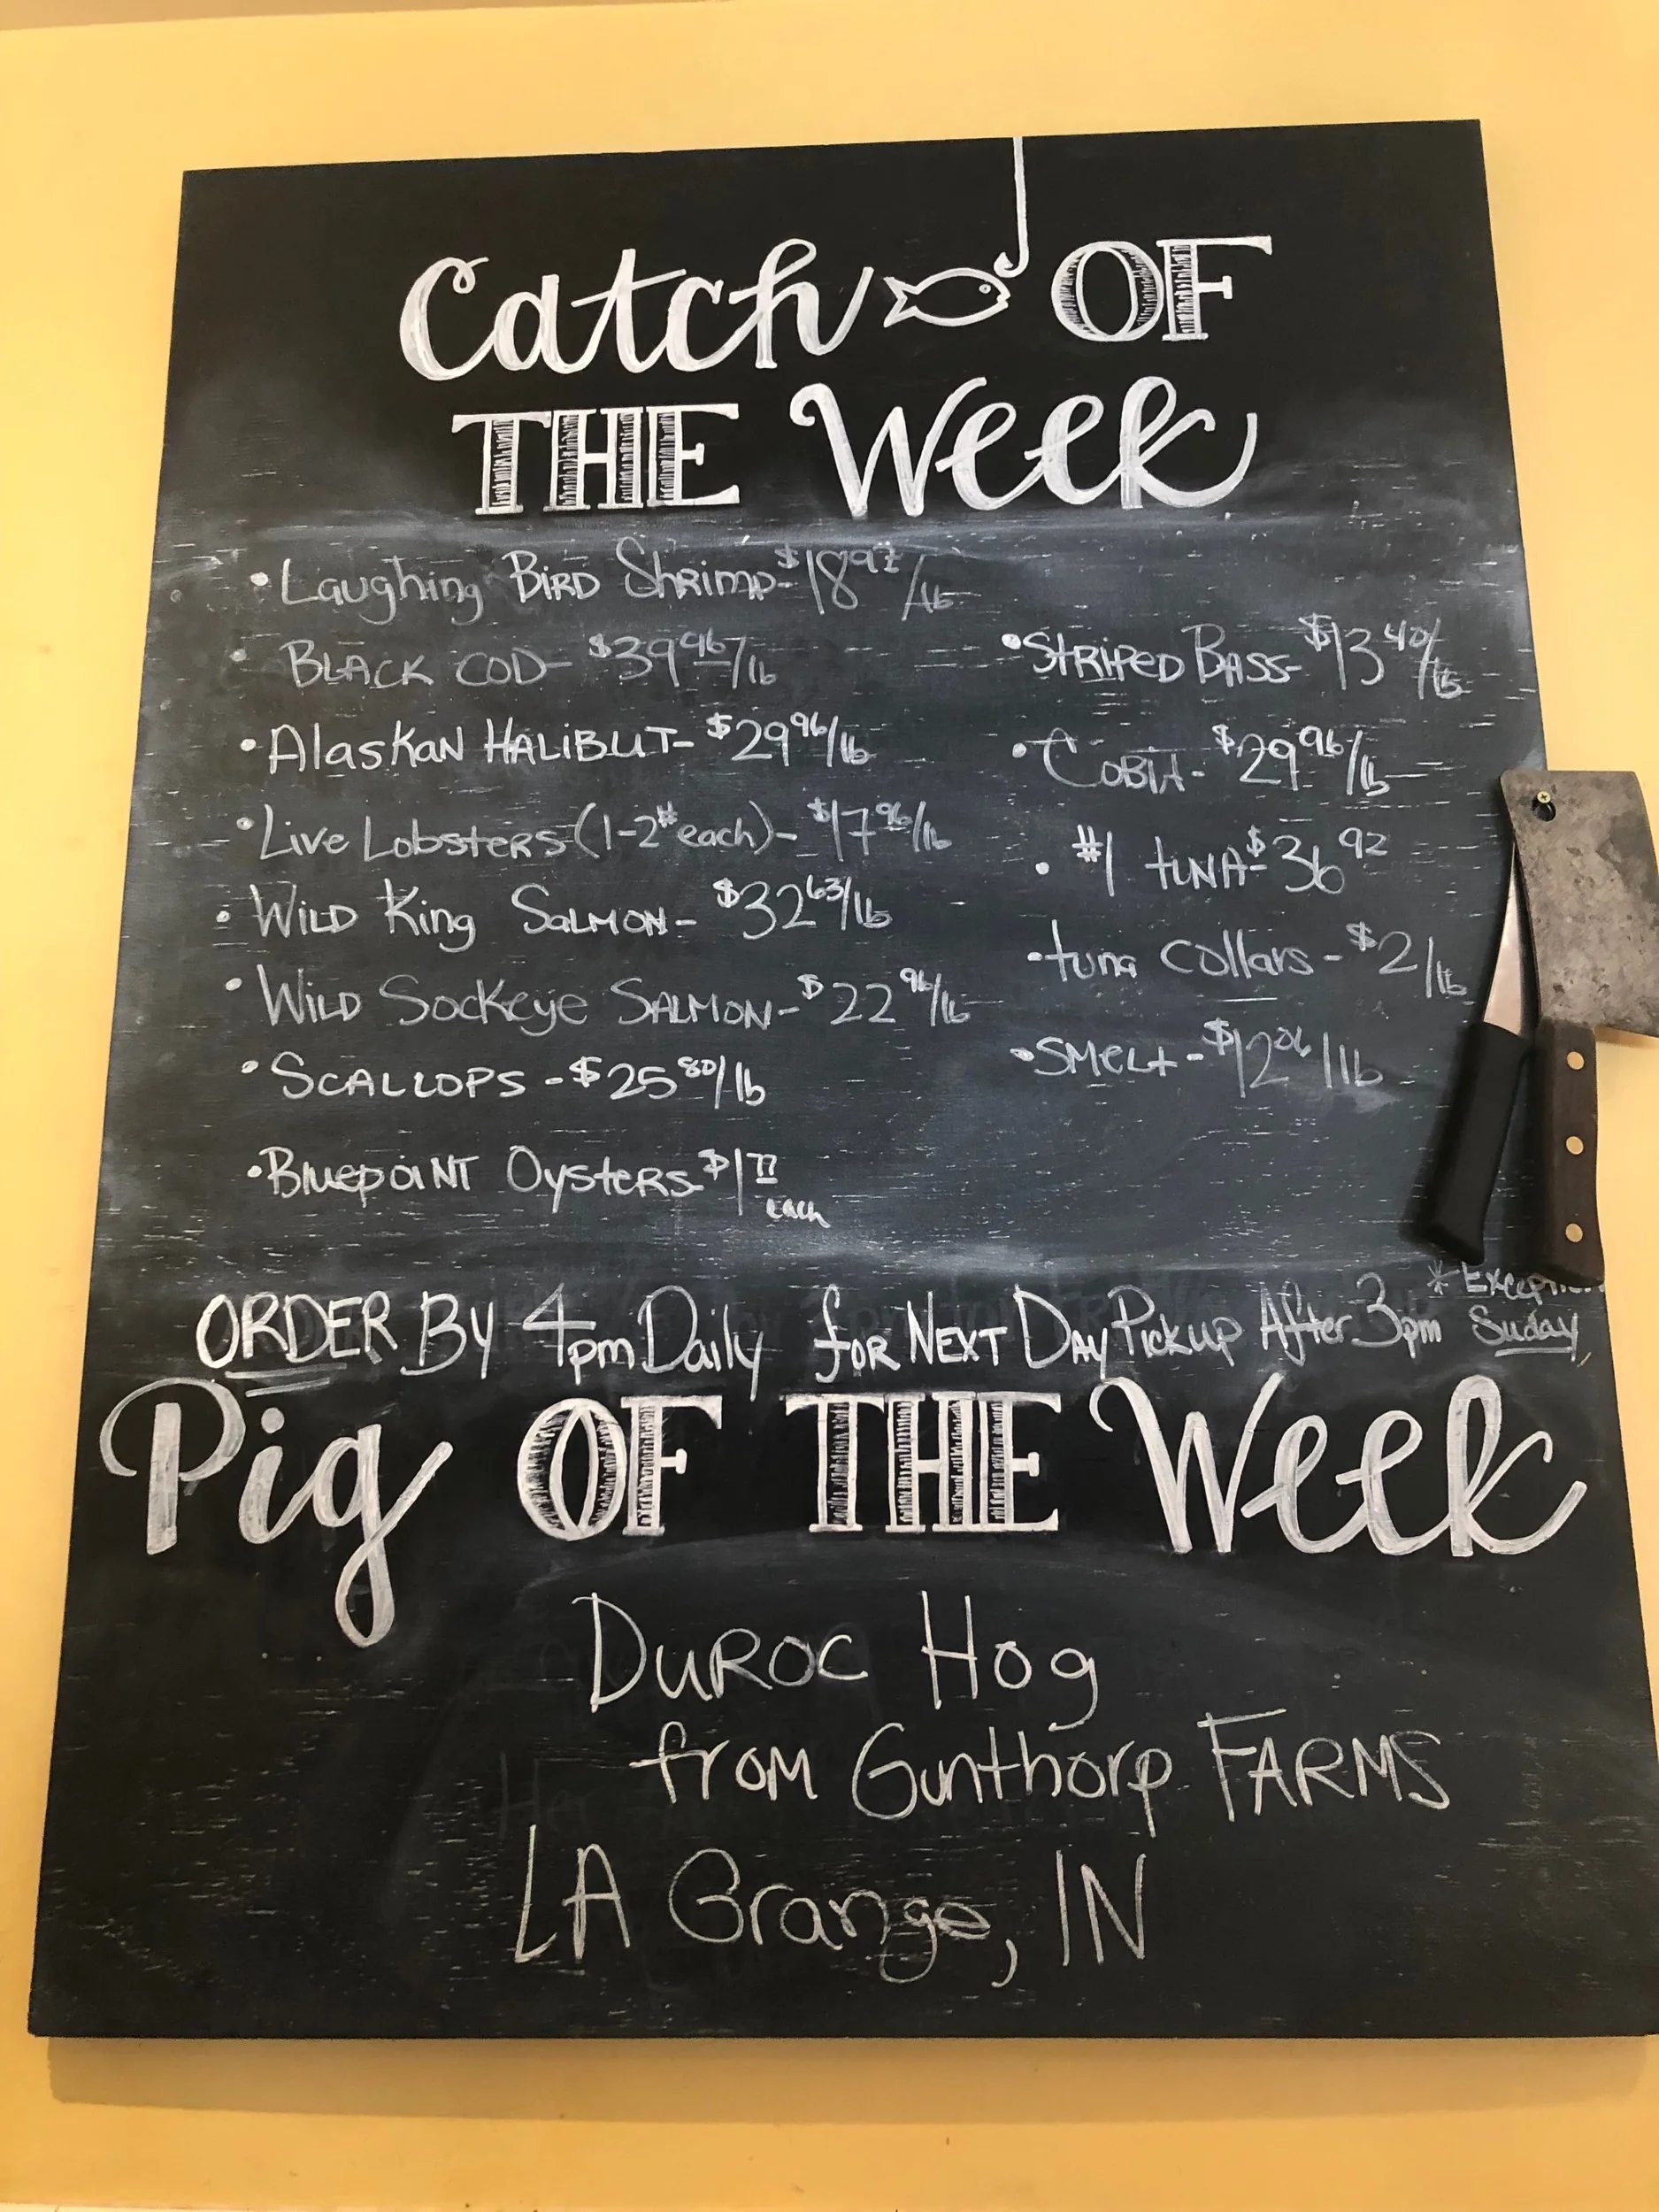 Catch OF
THE Week
• Laughing BIRD Shrimp - $18 92/lb
• BLACK COD - $39 96/lb
• Alaskan HALIBUT - $29 96/lb
• Live Lobsters (1-2# each) - $17 96/lb
• WILD King SALMON - $32 63/lb
• WILD Sockeye SALMON - $22 96/lb
• SCALLOPS - $25 80/lb
• Bluepoint Oysters - $1 77
each
• STRIPED BASS - $13 40/lb
• COBIA - $29 96/lb
• #1 tuna - $36 92
• tuna collars - $2/lb
• SMELT - $12 06/lb
ORDER BY 4pm Daily for NEXT DAY Pickup After 3pm
* Exception
Suday
Pig OF THE Week
DUROC Hog
from Gunthorp FARMS
LA Grange, IN